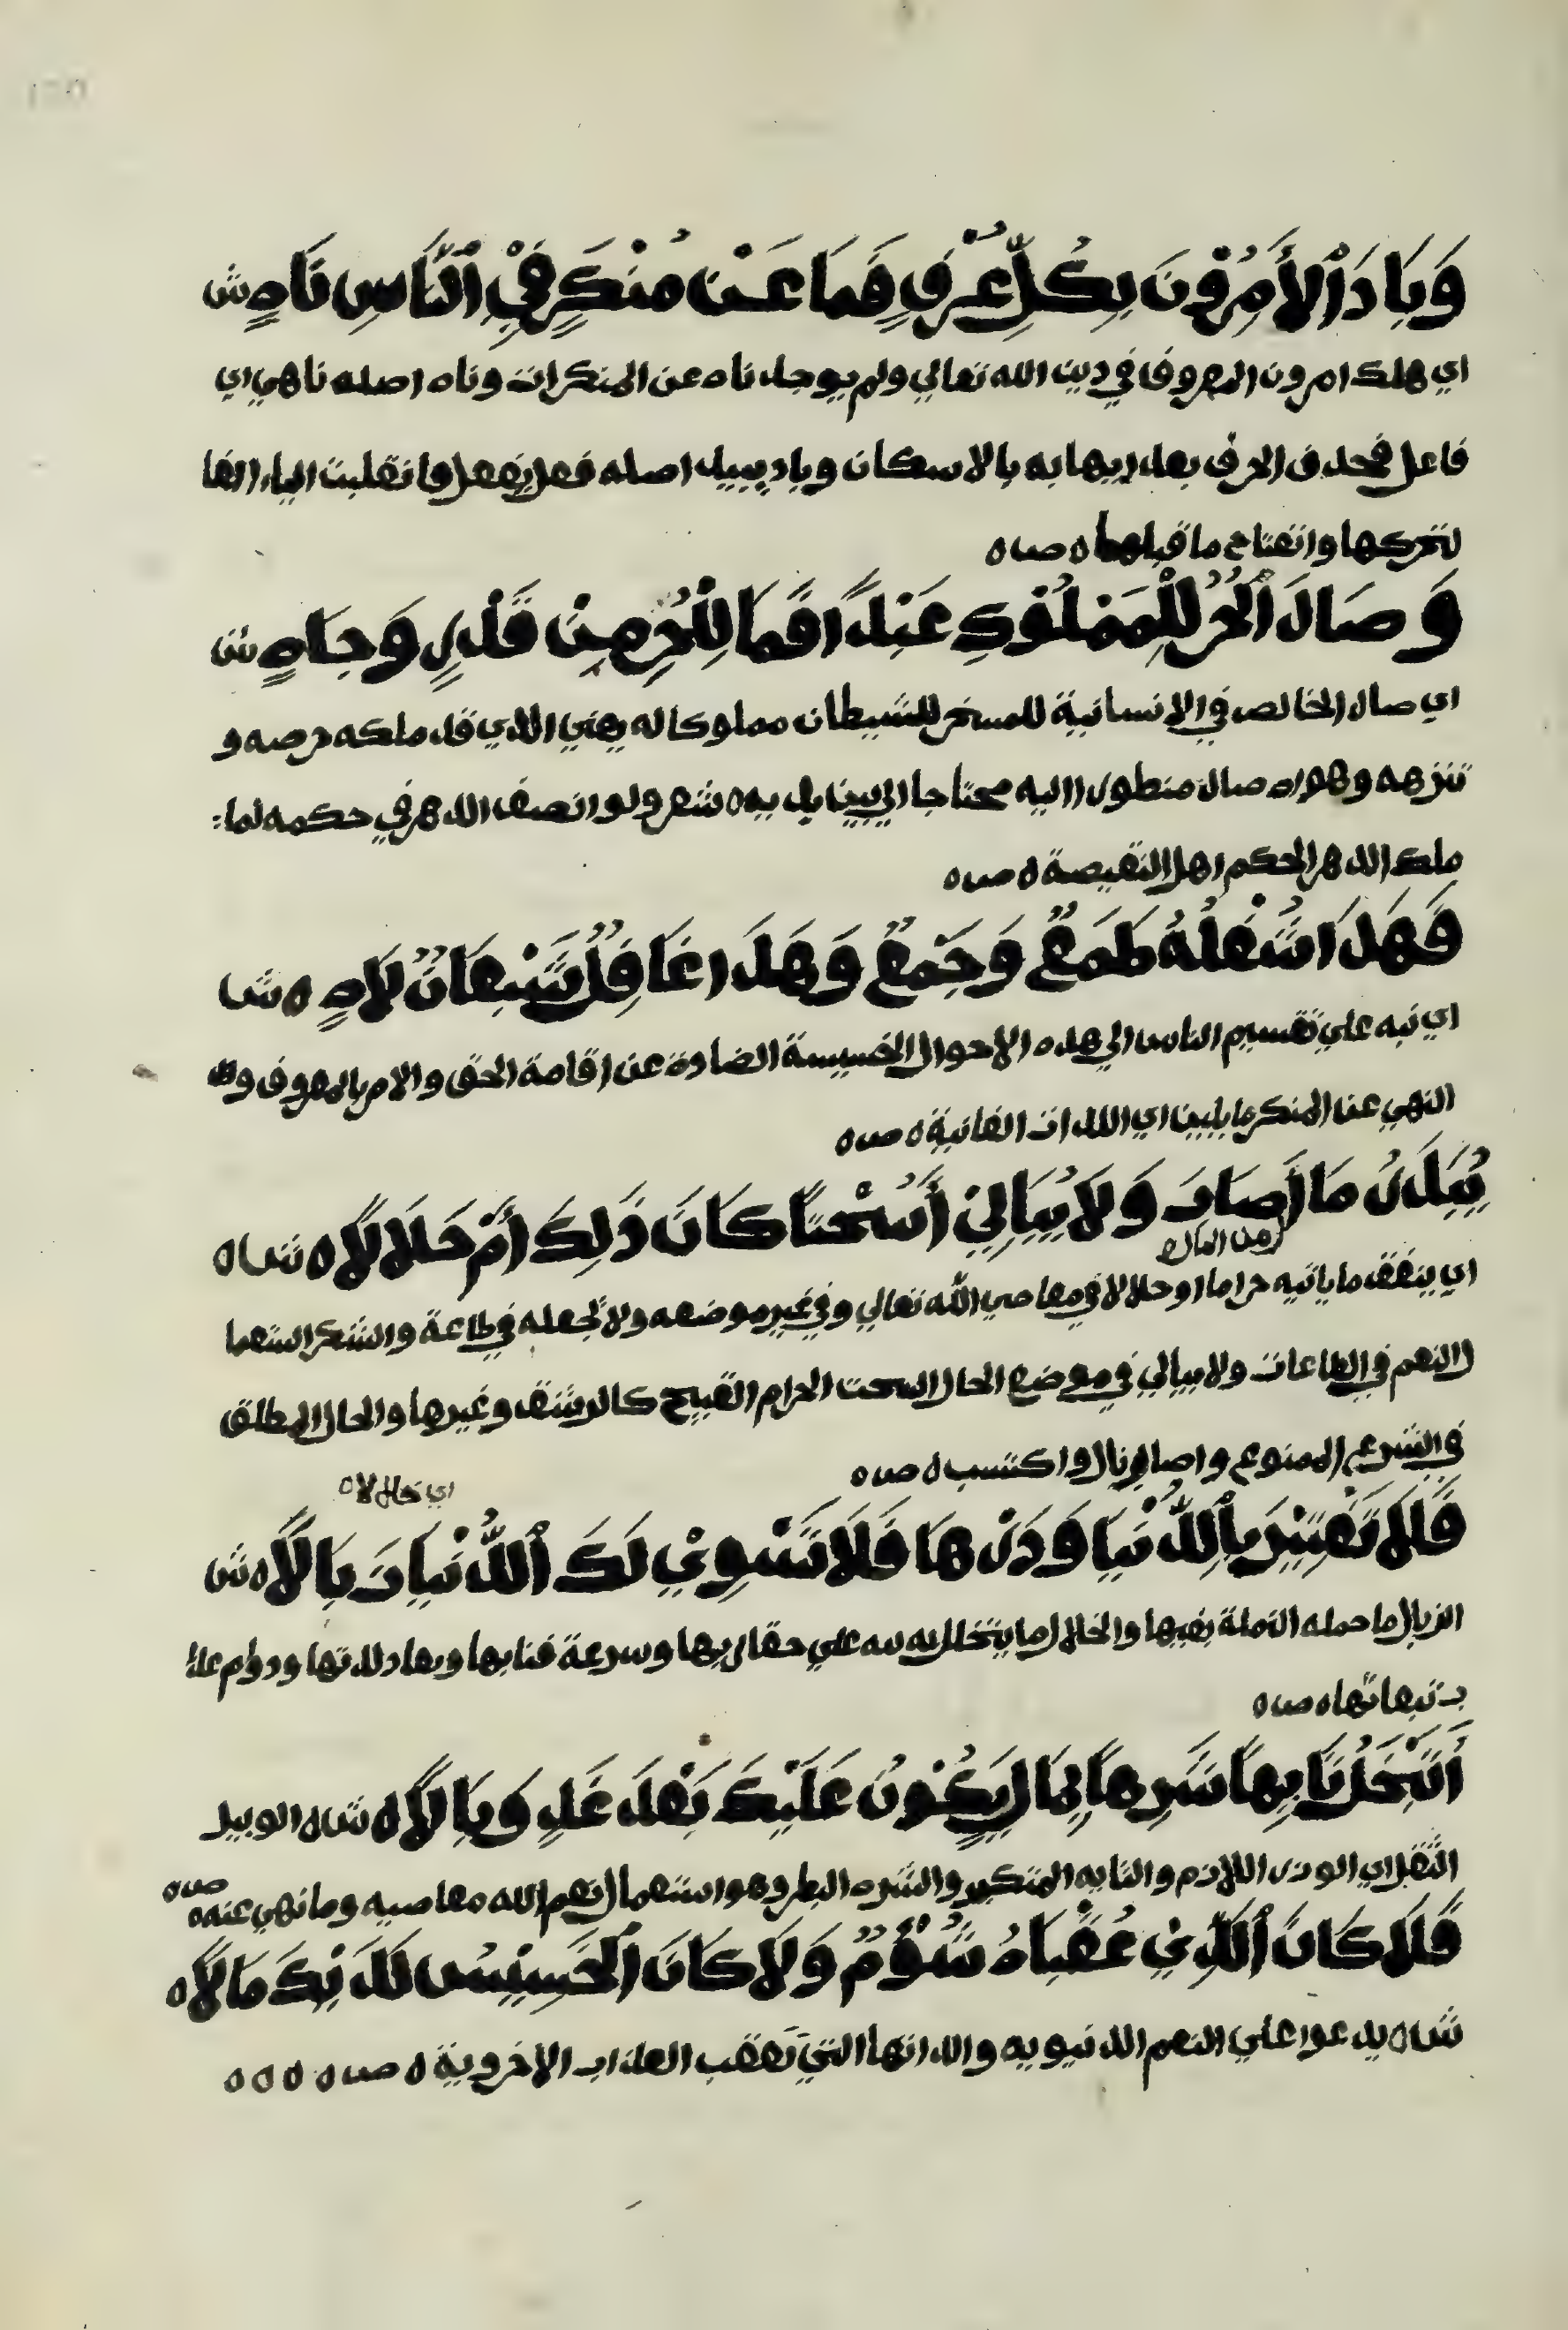 وَبَادَ ٱلْأَمِرُوْنَ بِكُلِّ عُرْفٍ فَمَا عَنْ مُنْكَرٍ فِيْ ٱلنَّاسِ نَاهٍ ش
اي هلك امرون المعروف في دين الله تعالي ولم يوجد ناه عن المنكرات وناه اصله ناهي اي
فاعل فحذف الحرف بعد بالاسكان وباد يبيد اصله فعل يفعل وانقلبت الياء الفا
لتحركها وانفتاح ما قبلها ه ص ه
وَصَالَ ٱلْحُرُّ لِلْمَمْلُوْكِ عَبْدًا فَمَا لِلْحُرِّ مِنْ قَدْرٍ وَجَاهٍ ش
اي صال الخالص في الانسانية للمسخر للشيطان مملوكا له يعني الذي قد ملكه حرصه و
وهواه صال منطورا اليه محتاجا الي بين يديه ه شعر ولو انصف الدهر في حكمه لما
ملك الدهر الحكم اهل النقيصة ه ص ه
فَهَذَا شُغْلُهُ طَمَعٌ وَجَمْعٌ وَهَذَا غَافِلٌ شَبْعَانٌ لَاهٍ ه ش
اي نبه علي تقسيم الناس الي هذه الاحوال الخسيسة الصادة عن اقامة الحق والامر بالمعروف و
النهي عن المنكر اي اللذات الفانية ه ص ه
يُبَذِّرُ مَا أَصَابَ وَلَا يُبَالِيْ أَسُحْتًا كَانَ ذَلِكَ أَمْ حَلَالَا ه ش ه
من المال
اي ينفق ما ياتيه حراما او حلالا في معاصي الله تعالي وفي غير موضعه ولا يجعله في طاعة والشكر استعما
ل النعم في الطاعات ولا يبالي في موضع الحال السحت الحرام القبيح وغيرها والحال المطلق
في الشرع الممنوع واصاب نال واكتسب ه ص ه
اي خال لا ه
فَلَا تَغْتَرِرْ بِٱلدُّنْيَا وَذَرْهَا فَلَا تَسْوِيْ لَكَ ٱلدُّنْيَا زِبَالَا ه ش
الزبال ما حمله النملة بفيها والخلال ما يتخلل به نبه علي حقارتها وسرعة فنايها ودوام عذا
ب تبعاتها ه ص ه
أَتَبْخَلُ تَابِهًا شَرِهًا بِمَالٍ يَكُوْنُ عَلَيْكَ بَعْدَ غَدٍ وَبَالَا ه ش ه الوبيل
الثقل اي الوزر اللازم والتايه المتكبر والشره البطر وهو استعمال نعم الله معاصيه وما نهي عنه ه ص ه
فَلَا كَانَ ٱلَّذِيْ عُقْبَاهُ شُؤْمٌ وَلَا كَانَ ٱلْخَسِيْسُ لَدَيْكَ مَالَا ه
ش ه يدعوا علي النعم الدنيويه ولذاتها التي تعقب العذاب الاخروية ه ص ه ه ه ه